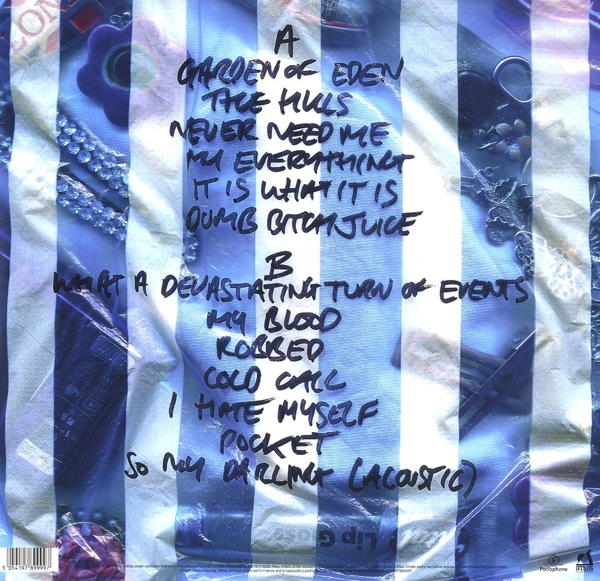 A
GARDEN OF EDEN
THE HILLS
NEVER NEED ME
MY EVERYTHING
IT IS WHAT IT IS
DUMB BITCH JUICE
B
WHAT A DEVASTATING TURN OF EVENTS
MY BLOOD
ROBBED
COLD CALL
I HATE MYSELF
POCKET
SO MY DARLING (ACOUSTIC)
Lip
5 054197 899997
Parlophone